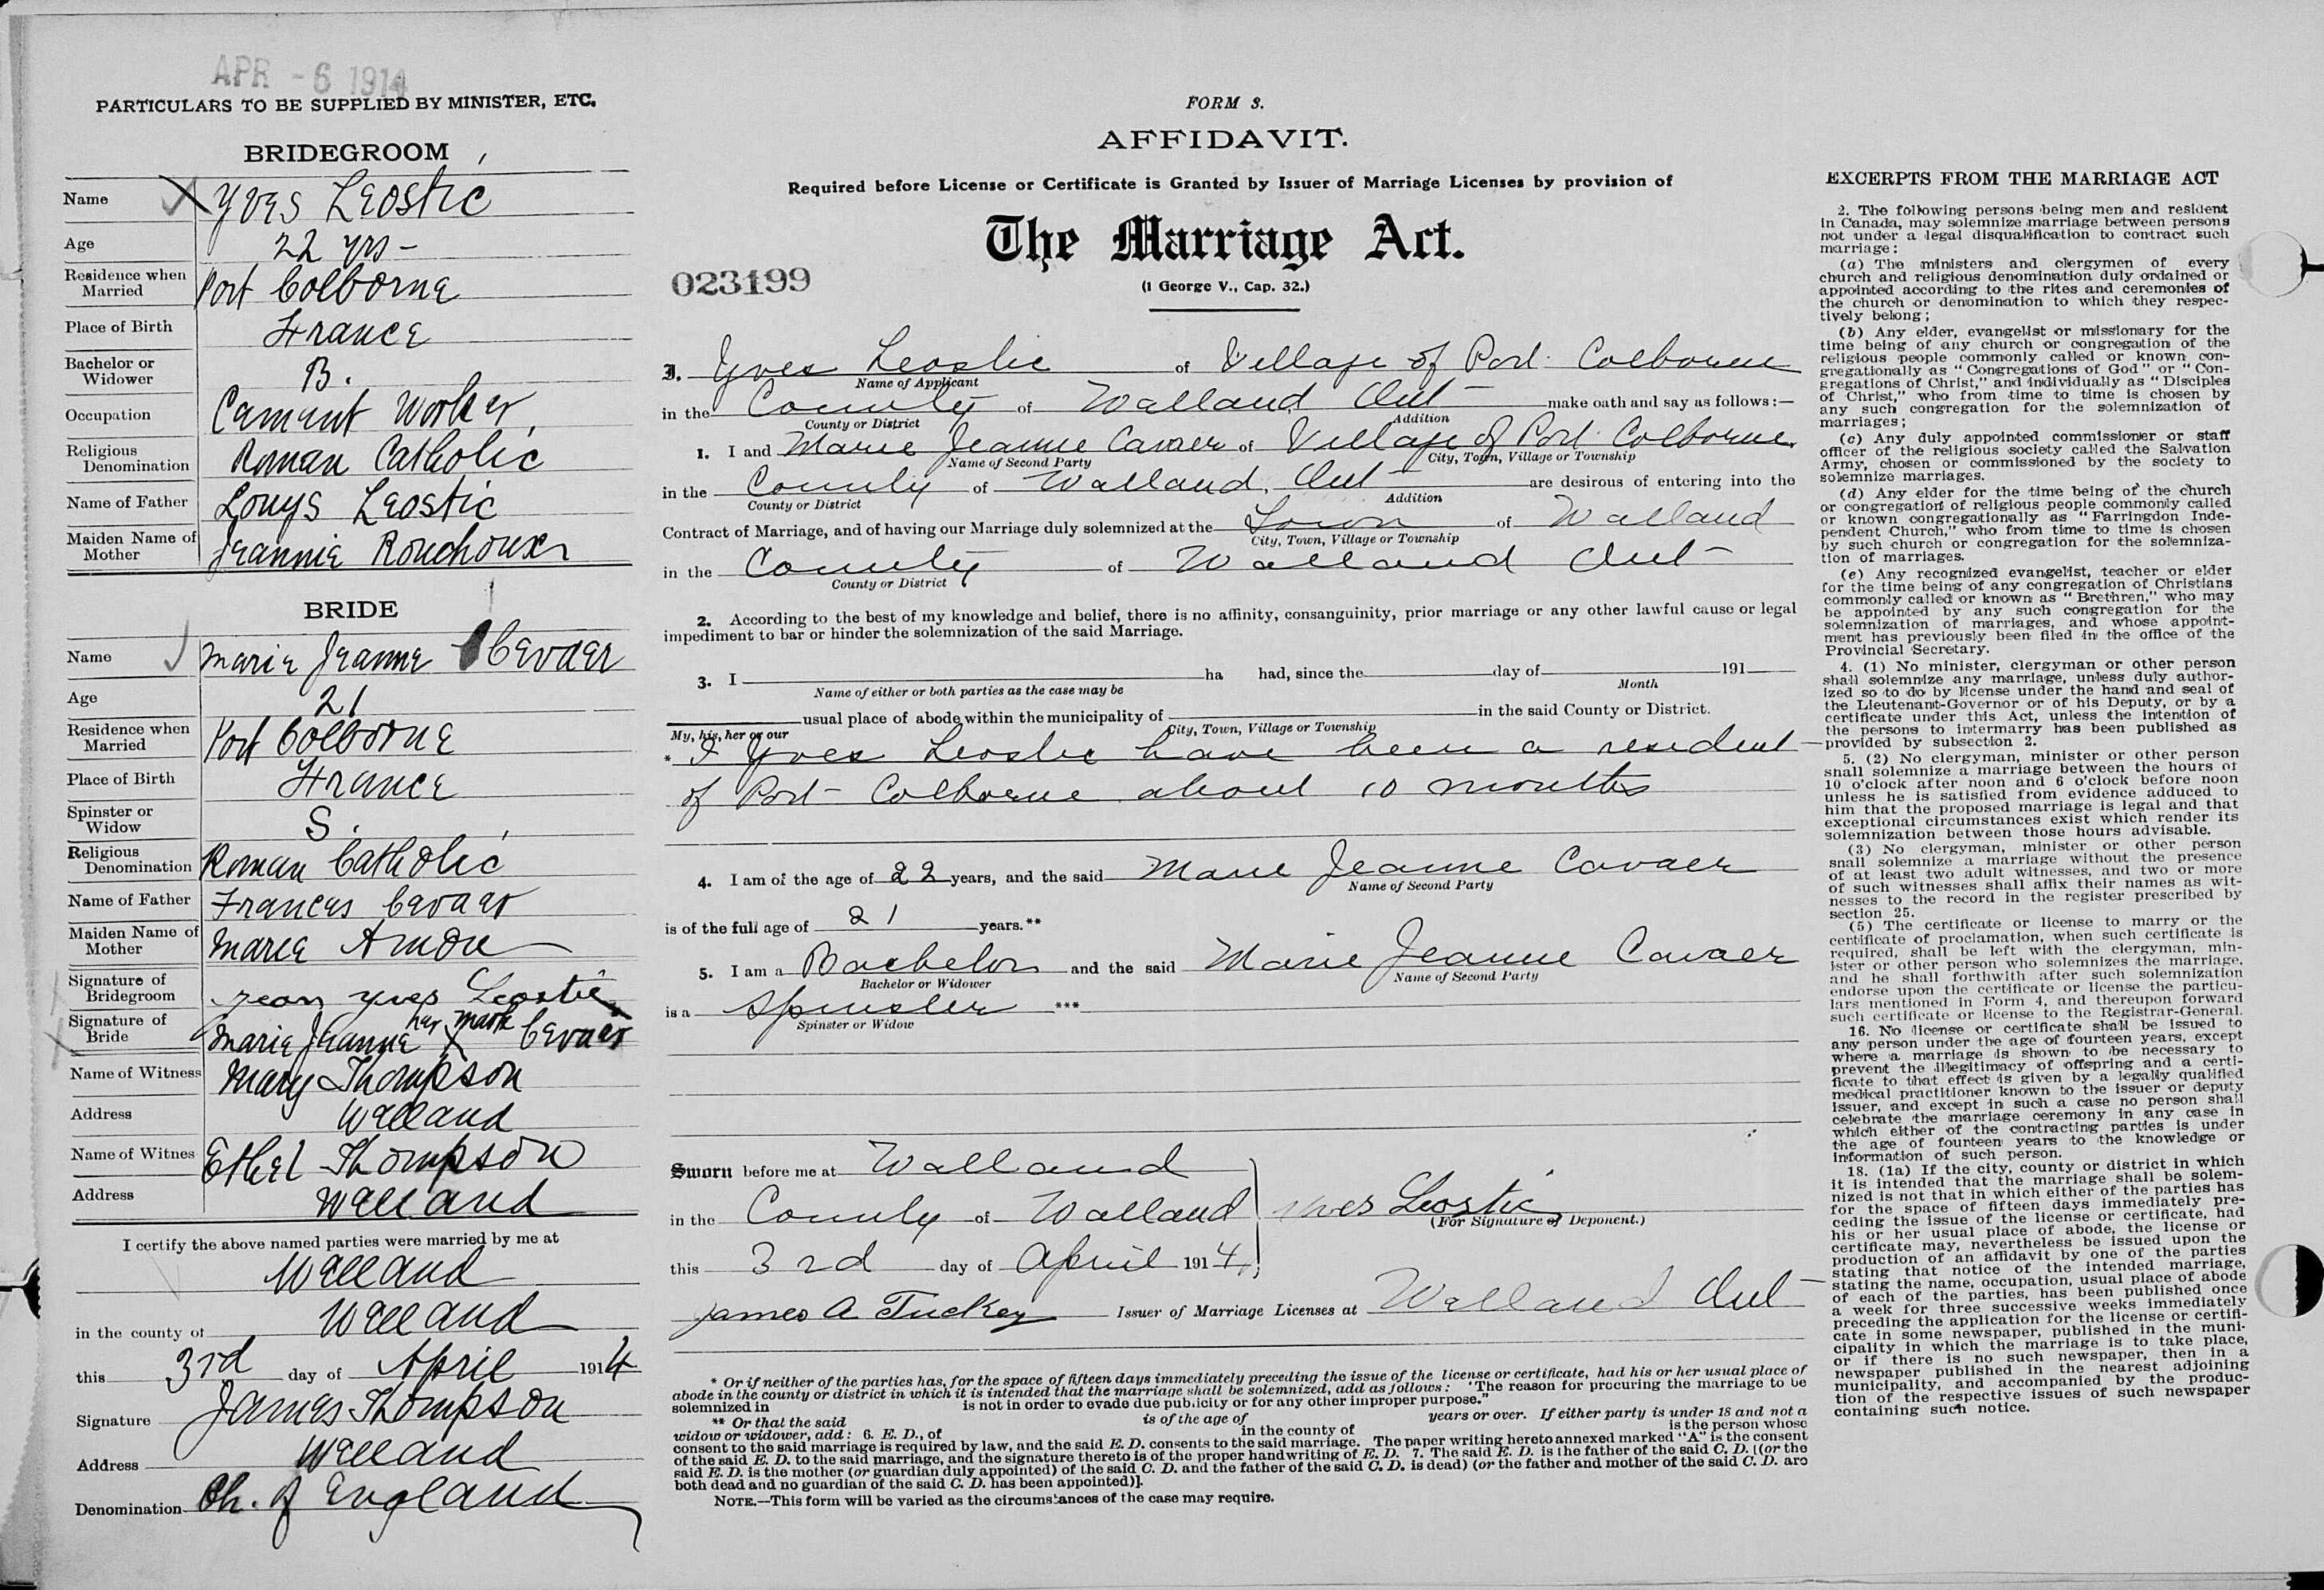 APR - 6 1914
PARTICULARS TO BE SUPPLIED BY MINISTER, ETC.
BRIDEGROOM
Name Yves Leostic
Age 22 yrs -
Residence when Married Port Colborne
Place of Birth France
Bachelor or Widower B.
Occupation Camant Worker
Religious Denomination Roman Catholic
Name of Father Louys Leostic
Maiden Name of Mother Jeannie
BRIDE
Name Maria Jeanne Cevaer
Age 21
Residence when Married Port Colborne
Place of Birth France
Spinster or Widow S.
Religious Denomination Roman Catholic
Name of Father Frances Cevaer
Maiden Name of Mother Maria
Signature of Bridegroom Jean Yves Leostic
Signature of Bride Marie Jeanne her X mark Cevaer
Name of Witness Mary Thompson
Address Welland
Name of Witnes Ethel Thompson
Address Welland
I certify the above named parties were married by me at
Welland
in the county of Welland
this 3rd day of April 1914
Signature James Thompson
Address Welland
Denomination Ch. of England
FORM 3.
AFFIDAVIT.
Required before License or Certificate is Granted by Issuer of Marriage Licenses by provision of
The Marriage Act.
023199
(1 George V., Cap. 32.)
I. Yves Leostic of Village of Port Colborne
Name of Applicant
in the County of Welland Ont make oath and say as follows:—
County or District Addition
1. I and Marie Jeanne Cavaer of Village of Port Colborne
Name of Second Party City, Town, Village or Township
in the County of Welland, Ont are desirous of entering into the
County or District Addition
Contract of Marriage, and of having our Marriage duly solemnized at the Town of Welland
City, Town, Village or Township
in the County of Welland Ont
County or District
2. According to the best of my knowledge and belief, there is no affinity, consanguinity, prior marriage or any other lawful cause or legal
impediment to bar or hinder the solemnization of the said Marriage.
3. I ha had, since the day of 191
Name of either or both parties as the case may be Month
usual place of abode within the municipality of in the said County or District.
My, his, her or our City, Town, Village or Township
* I Yves Leostic have been a resident
of Port Colborne about 10 months
4. I am of the age of 22 years, and the said Marie Jeanne Cavaer
Name of Second Party
is of the full age of 21 years.**
5. I am a Bachelor and the said Marie Jeanne Cavaer
Bachelor or Widower Name of Second Party
is a Spinster ***
Spinster or Widow
Sworn before me at Welland
in the County of Welland Yves Leostic
(For Signature of Deponent.)
this 3rd day of April 1914
James A Tuckey Issuer of Marriage Licenses at Welland Ont
* Or if neither of the parties has, for the space of fifteen days immediately preceding the issue of the license or certificate, had his or her usual place of
abode in the county or district in which it is intended that the marriage shall be solemnized, add as follows: "The reason for procuring the marriage to be
solemnized in is not in order to evade due publicity or for any other improper purpose."
** Or that the said is of the age of years or over. If either party is under 18 and not a
widow or widower, add: 6. E. D., of in the county of is the person whose
consent to the said marriage is required by law, and the said E. D. consents to the said marriage. The paper writing hereto annexed marked "A" is the consent
of the said E. D. to the said marriage, and the signature thereto is of the proper handwriting of E. D. 7. The said E. D. is the father of the said C. D. [(or the
said E. D. is the mother (or guardian duly appointed) of the said C. D. and the father of the said C. D. is dead) (or the father and mother of the said C. D. are
both dead and no guardian of the said C. D. has been appointed)].
NOTE.—This form will be varied as the circumstances of the case may require.
EXCERPTS FROM THE MARRIAGE ACT
2. The following persons being men and resident
in Canada, may solemnize marriage between persons
not under a legal disqualification to contract such
marriage:
(a) The ministers and clergymen of every
church and religious denomination duly ordained or
appointed according to the rites and ceremonies of
the church or denomination to which they respec-
tively belong;
(b) Any elder, evangelist or missionary for the
time being of any church or congregation of the
religious people commonly called or known con-
gregationally as "Congregations of God" or "Con-
gregations of Christ," and individually as "Disciples
of Christ," who from time to time is chosen by
any such congregation for the solemnization of
marriages;
(c) Any duly appointed commissioner or staff
officer of the religious society called the Salvation
Army, chosen or commissioned by the society to
solemnize marriages.
(d) Any elder for the time being of the church
or congregation of religious people commonly called
or known congregationally as "Farringdon Inde-
pendent Church," who from time to time is chosen
by such church or congregation for the solemniza-
tion of marriages.
(e) Any recognized evangelist, teacher or elder
for the time being of any congregation of Christians
commonly called or known as "Brethren," who may
be appointed by any such congregation for the
solemnization of marriages, and whose appoint-
ment has previously been filed in the office of the
Provincial Secretary.
4. (1) No minister, clergyman or other person
shall solemnize any marriage, unless duly author-
ized so to do by license under the hand and seal of
the Lieutenant-Governor or of his Deputy, or by a
certificate under this Act, unless the intention of
the persons to intermarry has been published as
provided by subsection 2.
5. (2) No clergyman, minister or other person
shall solemnize a marriage between the hours of
10 o'clock after noon and 6 o'clock before noon
unless he is satisfied from evidence adduced to
him that the proposed marriage is legal and that
exceptional circumstances exist which render its
solemnization between those hours advisable.
(3) No clergyman, minister or other person
shall solemnize a marriage without the presence
of at least two adult witnesses, and two or more
of such witnesses shall affix their names as wit-
nesses to the record in the register prescribed by
section 25.
(5) The certificate or license to marry or the
certificate of proclamation, when such certificate is
required, shall be left with the clergyman, min-
ister or other person who solemnizes the marriage,
and he shall forthwith after such solemnization
endorse upon the certificate or license the particu-
lars mentioned in Form 4, and thereupon forward
such certificate or license to the Registrar-General.
16. No license or certificate shall be issued to
any person under the age of fourteen years, except
where a marriage is shown to be necessary to
prevent the illegitimacy of offspring and a certi-
ficate to that effect is given by a legally qualified
medical practitioner known to the issuer or deputy
issuer, and except in such a case no person shall
celebrate the marriage ceremony in any case in
which either of the contracting parties is under
the age of fourteen years to the knowledge or
information of such person.
18. (1a) If the city, county or district in which
it is intended that the marriage shall be solem-
nized is not that in which either of the parties has
for the space of fifteen days immediately pre-
ceding the issue of the license or certificate, had
his or her usual place of abode, the license or
certificate may, nevertheless be issued upon the
production of an affidavit by one of the parties
stating that notice of the intended marriage,
stating the name, occupation, usual place of abode
of each of the parties, has been published once
a week for three successive weeks immediately
preceding the application for the license or certifi-
cate in some newspaper, published in the muni-
cipality in which the marriage is to take place,
or if there is no such newspaper, then in a
newspaper published in the nearest adjoining
municipality, and accompanied by the produc-
tion of the respective issues of such newspaper
containing such notice.